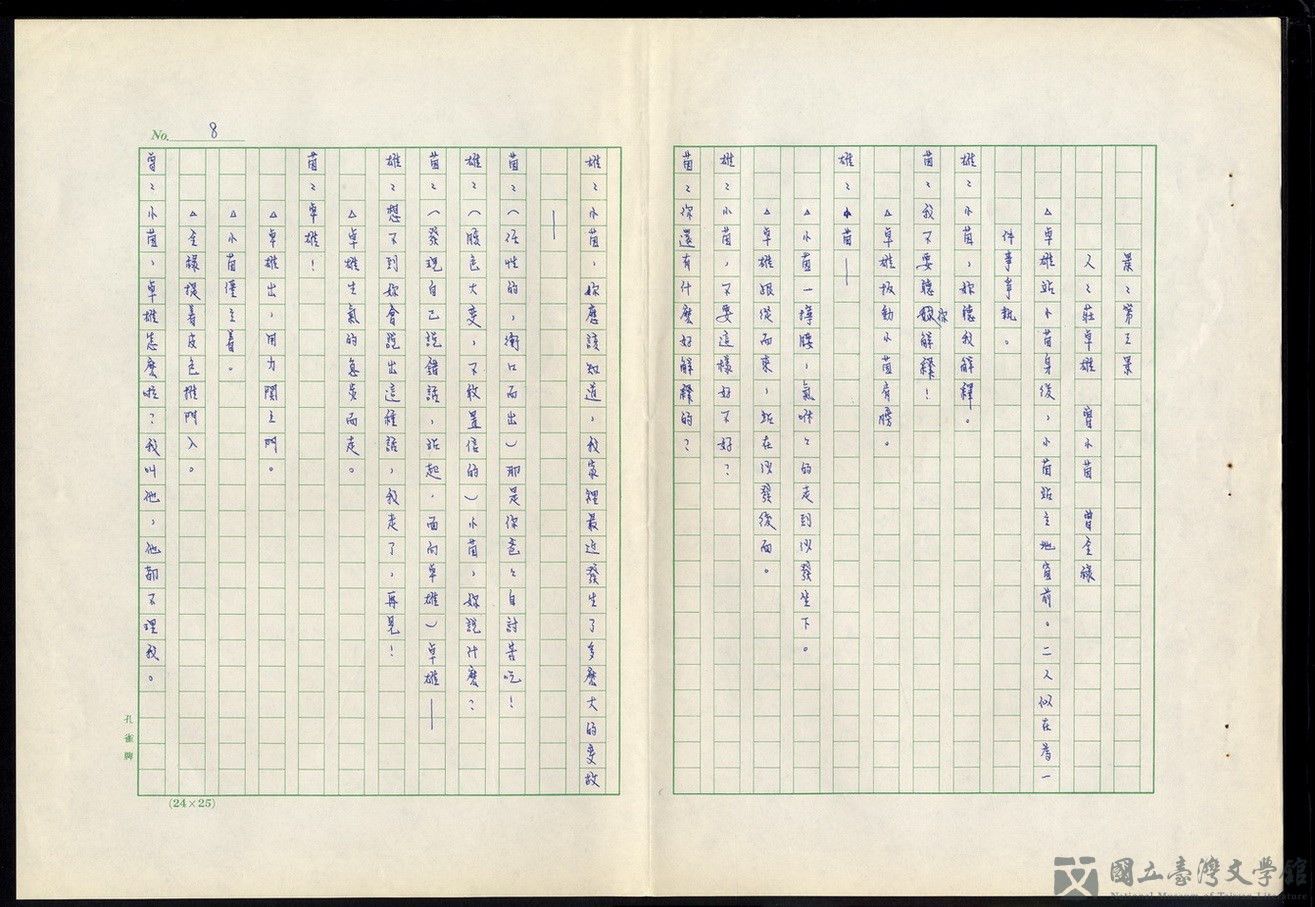 景：第三景
人：莊卓雄　曾小茵　曾金祿
△卓雄站小茵身後，小茵站立地窗前。二人似在為一
件事爭執。
雄：小茵，妳聽我解釋。
茵：我不要聽你解釋！
△卓雄扳動小茵肩膀。
雄：小茵——
△小茵一擰腰，氣咻咻的走到沙發坐下。
△卓雄跟從而來，站在沙發後面。
雄：小茵，不要這樣好不好？
茵：你還有什麼好解釋的？
No. 8
雄：小茵，妳應該知道，我家裡最近發生了多麼大的變故
——
茵：（任性的，衝口而出）那是你爸爸自討苦吃！
雄：（臉色大變，不敢置信的）小茵，妳說什麼？
茵：（發現自己說錯話，站起，面向卓雄）卓雄——
雄：想不到妳會說出這種話，我走了，再見！
△卓雄生氣的急急而走。
茵：卓雄！
△卓雄出，用力關上門。
△小茵僵立著。
△金祿提著皮包推門入。
曾：小茵，卓雄怎麼啦？我叫他，他都不理我。
孔雀牌
(24×25)
國立臺灣文學館
National Museum of Taiwan Literature